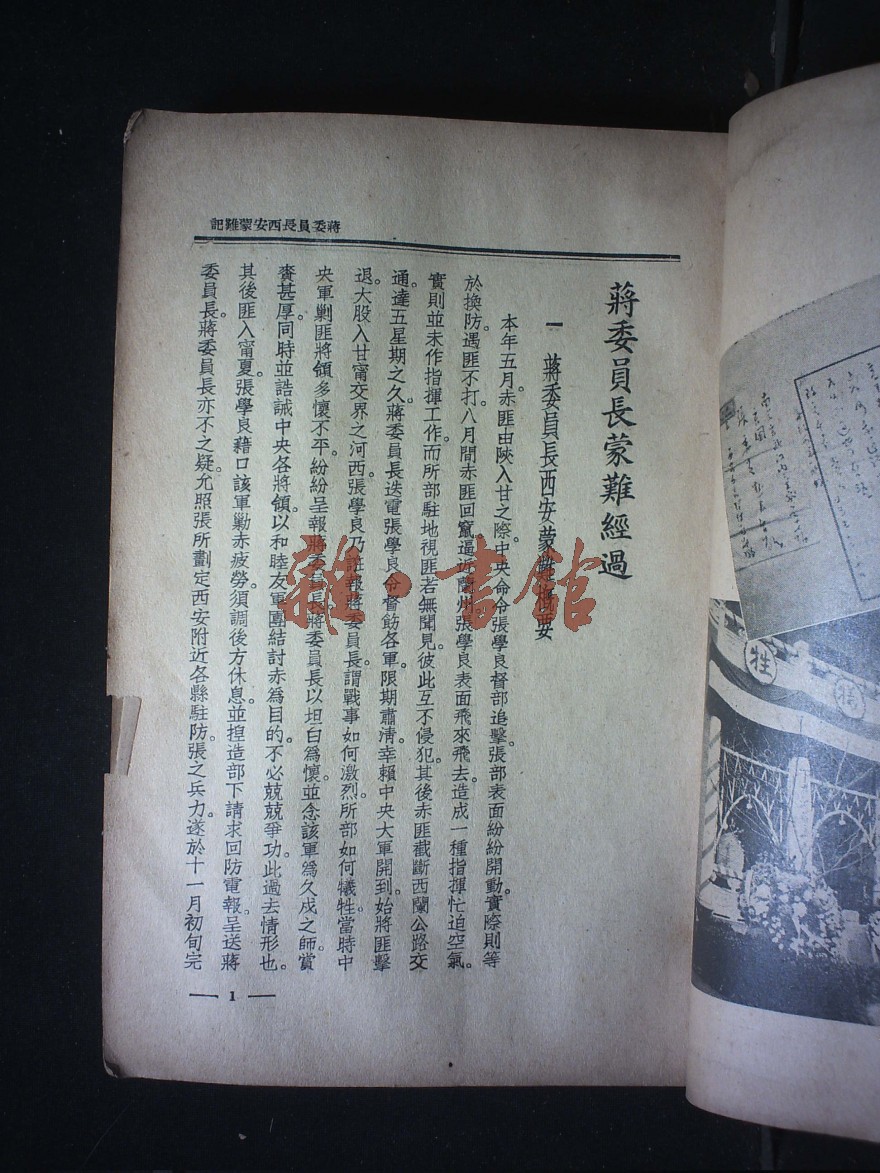 蔣委員長西安蒙難記
蔣委員長蒙難經過
一　蔣委員長西安蒙難撮要
本年五月赤匪由陝入甘之際中央命令張學良督部追擊張部表面紛紛開動。實際則等
於換防。遇匪不打。八月間赤匪回竄逼近蘭州張學良表面飛來飛去。造成一種指揮忙迫空氣。
實則並未作指揮工作。而所部駐地視匪若無聞見。彼此互不侵犯。其後赤匪截斷西蘭公路交
通。達五星期之久。蔣委員長迭電張學良令督飭各軍。限期肅清。幸賴中央大軍開到。始將匪擊
退。大股入甘甯交界之河西。張學良乃謊報蔣委員長。謂戰事如何激烈所部如何犧牲。當時中
央軍剿匪將領多懷不平紛紛呈報蔣委員長。蔣委員長以坦白爲懷。並念該軍爲久戍之師。賞
賚甚厚。同時並誥誡中央各將領。以和睦友軍團結討赤爲目的。不必兢兢爭功。此過去情形也。
其後匪入甯夏。張學良藉口該軍勦赤疲勞。須調後方休息。並揑造部下請求回防電報。呈送蔣
委員長。蔣委員長亦不之疑。允照張所劃定西安附近各縣駐防。張之兵力。遂於十一月初旬完
1
雜·書館
牲
犠